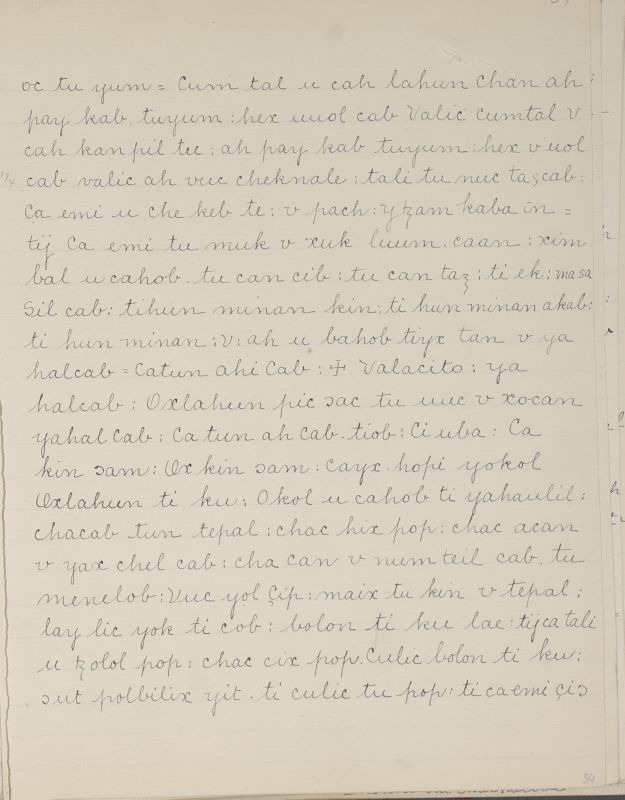 oc tu yum = Cum tal u cah lahun Chan ah :
pay kab. tuyum : hex uuol cab Valic cumtal v
cah kan pil tee : ah pay kab tuyum : hex v uol
cab valic ah vuc cheknale : tali tu nuc taɔcab :
Ca emi u che keb te : v pach : yꜩam kaba in =
tij Ca emi tu muk v xuk luum. caan : xim
bal u cahob. tu can cib : tu can taꜩ : ti ek : masa
Sil cab : tihun minan kin : ti hun minan akab :
ti hun minan : v : ah u bahob tiyx tan v ya
halcab = Catun ahi Cab : ☩ Valacito : ya
halcab : Oxlahun pic ɔac tu uuc v xocan
yahal cab : Ca tun ah cab. tiob : Ci uba : Ca
kin ɔam : Ox kin ɔam : Cayx. hopi yokol
Oxlahun ti ku : Okol u cahob ti yahaulil :
chacab tun tepal : chac hix pop : chac acan
v yax chel cab : cha can v num teil cab. tu
menelob : Vuc yol Çip : maix tu kin v tepal :
lay lic yok ti cob : bolon ti ku lae : tijca tali
u ꜩolol pop : chac cix pop. Culic bolon ti ku :
ɔut polbilix yit. ti culic tu pop : ti ca emi çiɔ
30